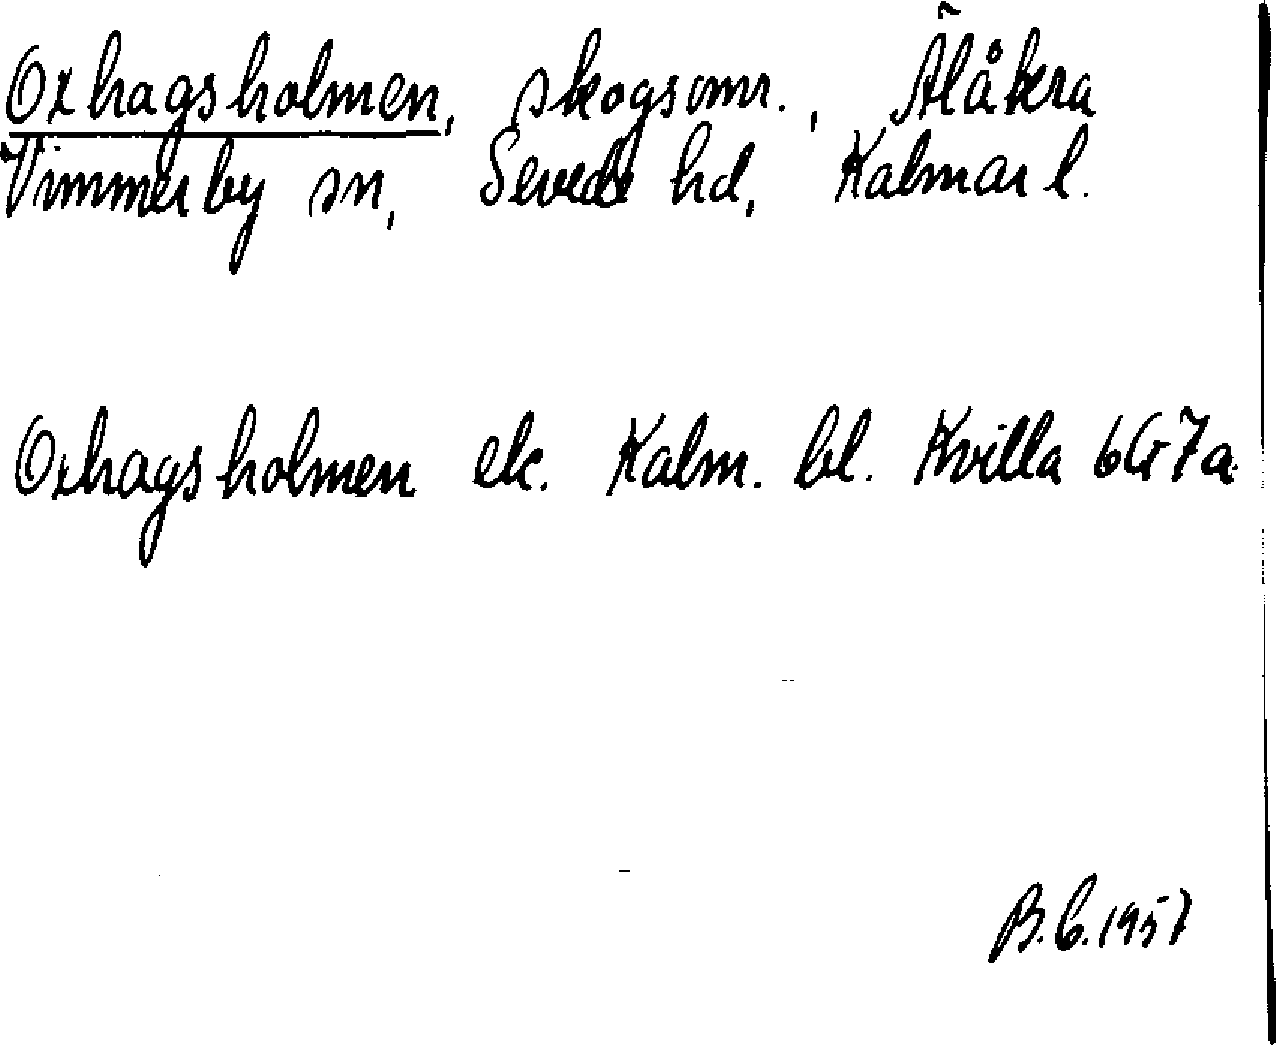 Oxhagsholmen, skogsomr., Älåkra
Vimmerby sn, Sevede hd, Kalmar l.
Oxhagsholmen ek. Kalm. bl. Kvilla 6G7a
B.C.1957